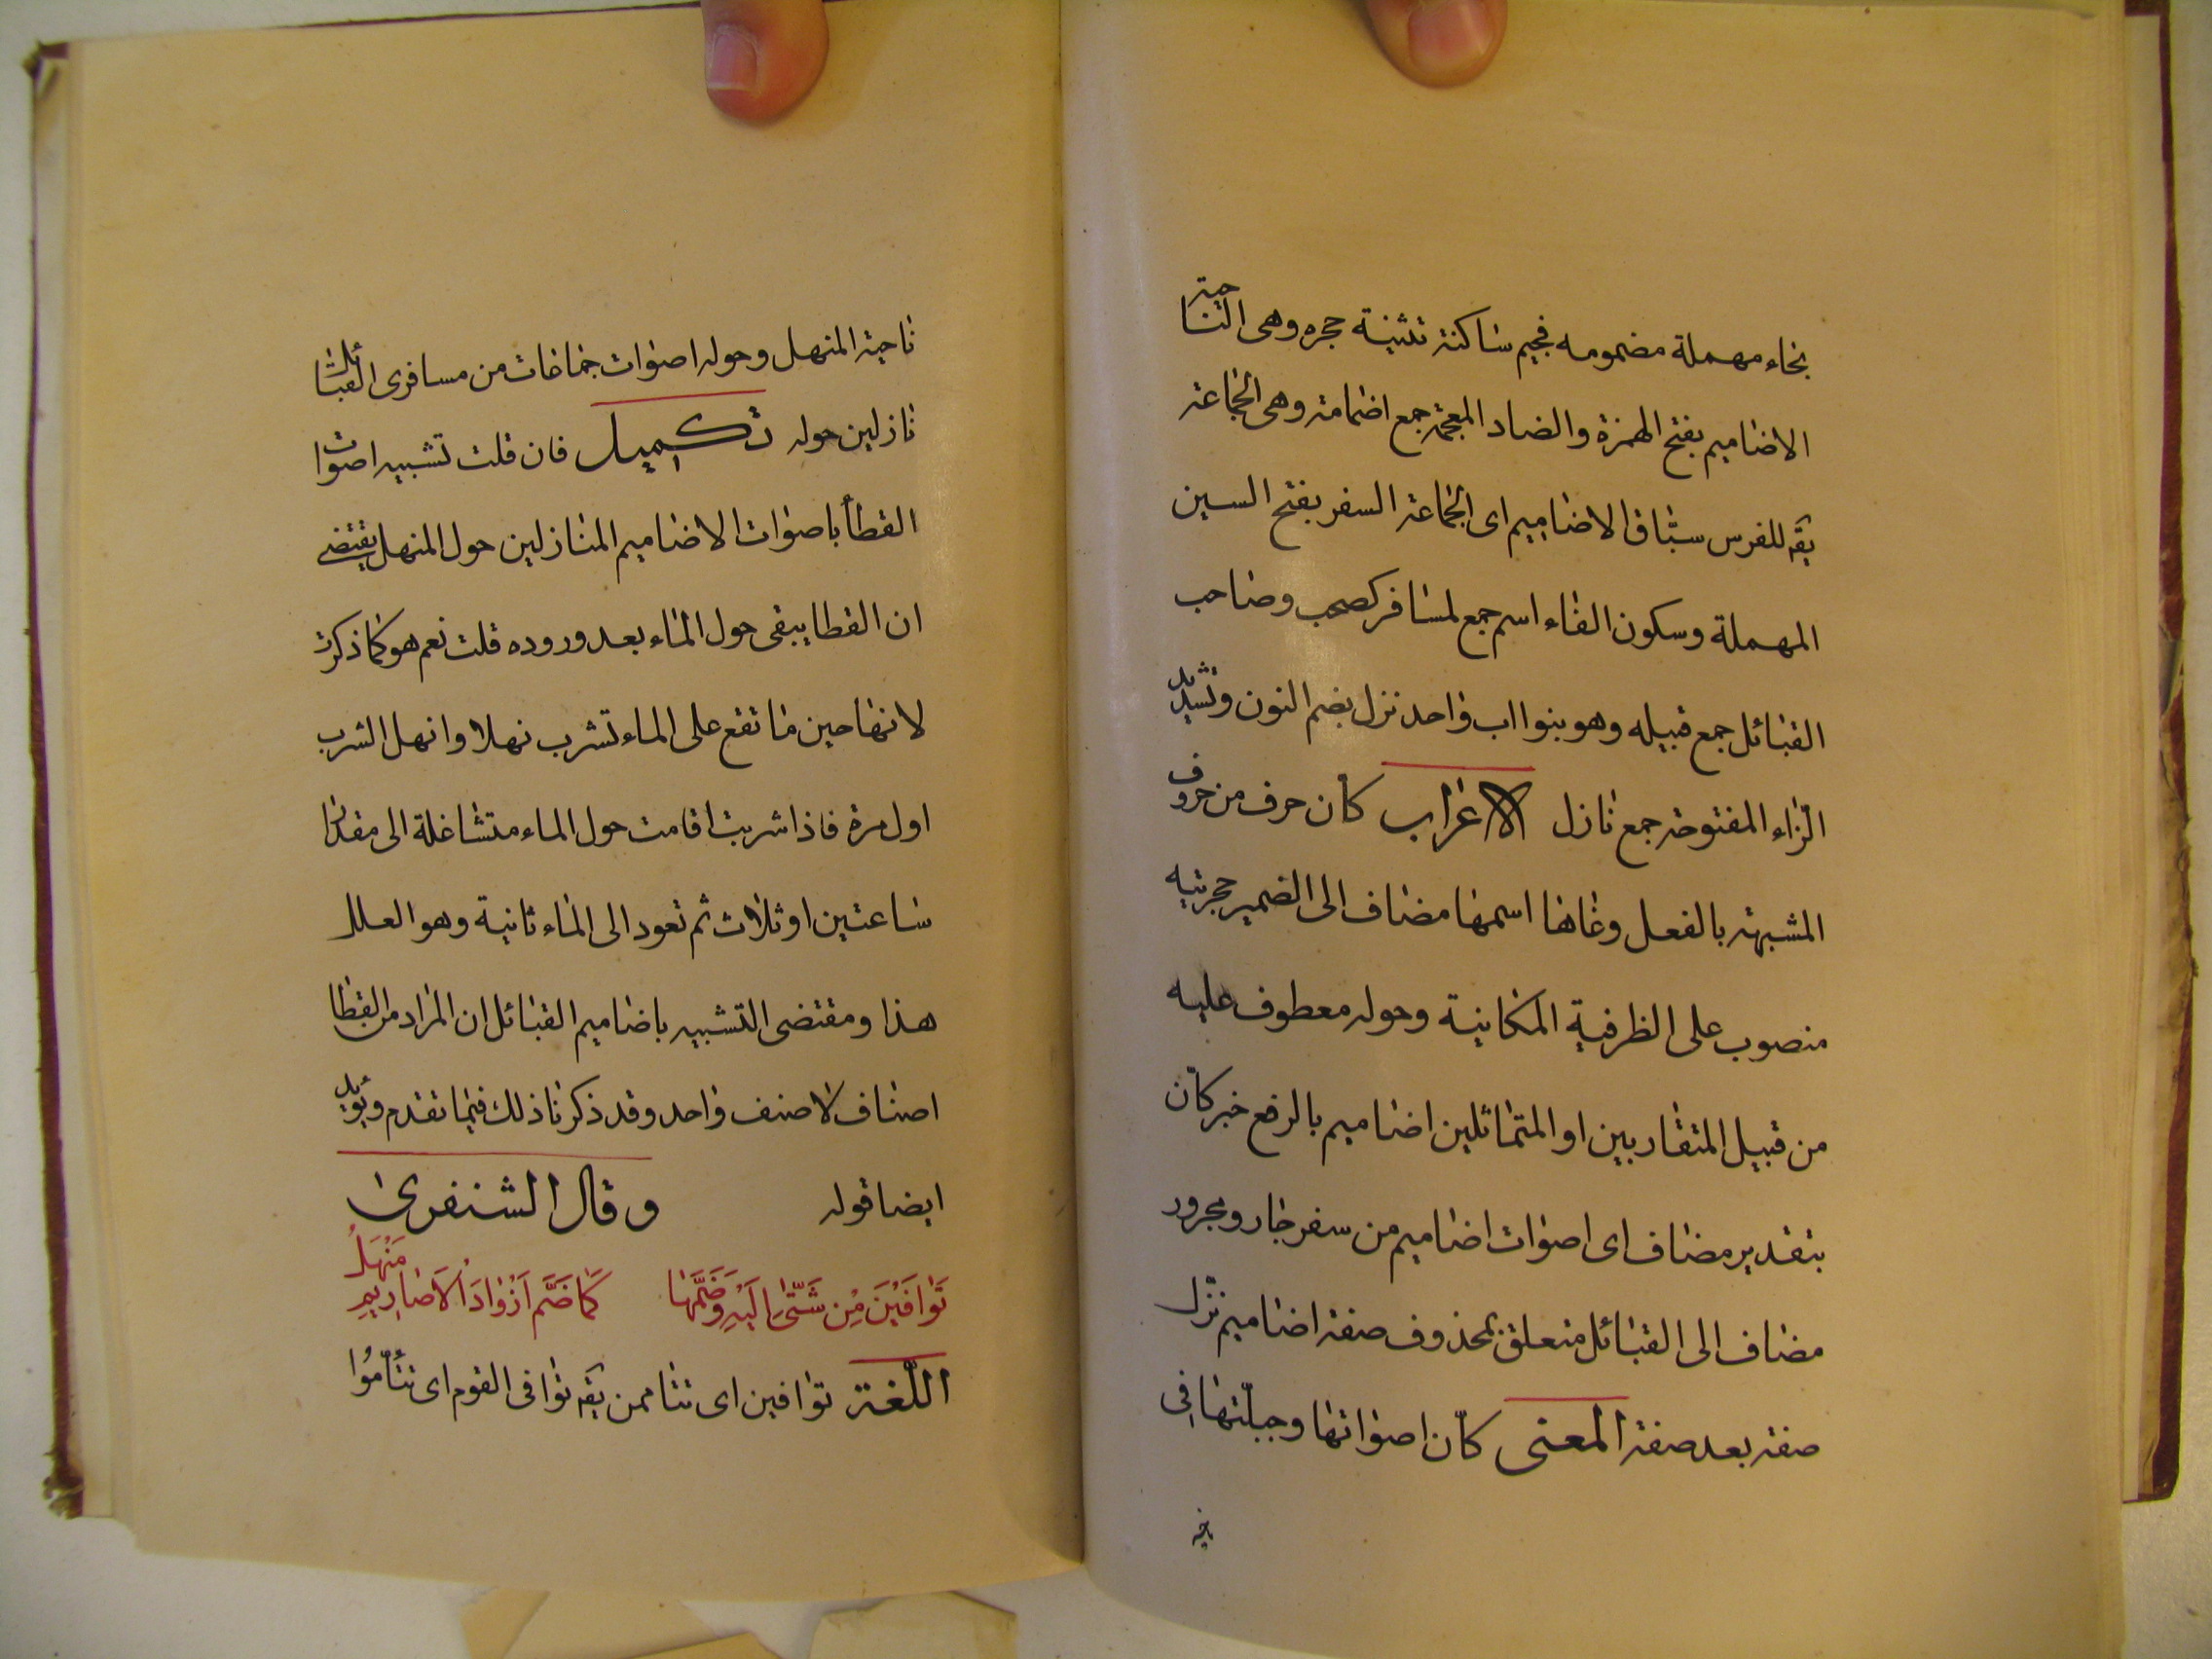 بحاء مهملة مضمومه فجيم ساكنة تثنية حجره وهى الناحية
الاضاميم بفتح الهمزة والضاد المعجمة جمع اضمامة وهى الجماعة
يقه للفرس سباق الاضاميم اى الجماعة السفر بفتح السين
المهملة وسكون الفاء اسم جمع لمسافر كصحب وصاحب
القبائل جمع قبيله وهو بنوا اب واحد نزل بضم النون وتشديد
الزاء المفتوحة جمع نازل الاعراب كان حرف من حروف
المشبهة بالفعل وغاها اسمها مضاف الى الضمير حجرتيه
منصوب على الظرفية المكانية وحوله معطوف عليه
من قبيل المتقاربين او المتماثلين اضاميم بالرفع خبر كان
بتقدير مضاف اى اصوات اضاميم من سفر جار ومجرور
مضاف الى القبائل متعلق بمحذوف صفة اضاميم نزل
صفة بعد صفة المعنى كان اصواتها وجبلتها فى
ناحية المنهل وحوله اصوات جماعات من مسافرى القبائل
نازلين حوله تكميل فان قلت تشبيه اصوات
القطا باصوات الاضاميم المنازلين حول المنهل يقتضى
ان القطا يبقى حول الماء بعد وروده قلت نعم هو كما ذكرت
لانها حين ما تقع على الماء تشرب نهلا وانهل الشرب
اول مرة فاذا شربت اقامت حول الماء متشاغلة الى مقدار
ساعتين او ثلاث ثم تعود الى الماء ثانية وهو العلل
هذا ومقتضى التشبيه باضاميم القبائل ان المراد من القطا
اصناف لا صنف واحد وقد ذكرنا ذلك فيما تقدم ويؤيد
ايضا قوله وقال الشنفرى
تَوَافَيْنَ مِن شَتّىٰ اِلَيْهِ وَضَمَّهَا كَمَا ضَمَّ اَزْوَادَ الاَصَارِيمِ مَنْهَلُ
اللّغة توافين اى تتاممن يقه توافى القوم اى تتأمّوا